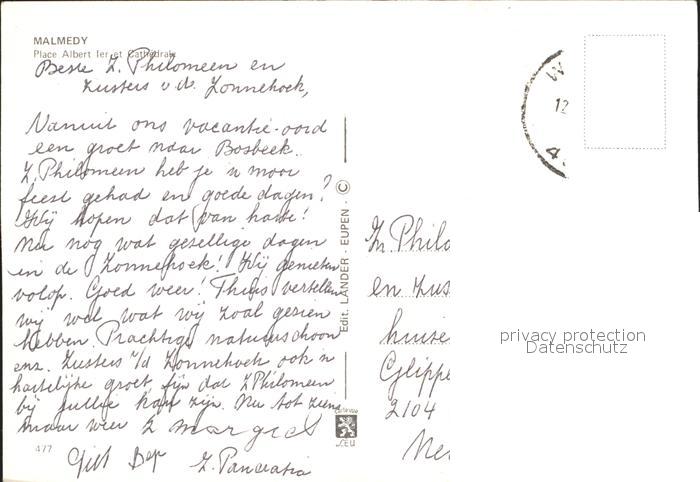 MALMEDY
Place Albert Ier et Cathédrale
Beste Z. Philomeen en
Zusters v. d. Zonnehoek,
Vanuit ons vacantie-oord
een groet naar Bosbeek.
Z. Philomeen heb je 'n mooi
feest gehad en goede dagen?
Wij hopen dat van harte!
Nu nog wat gezellige dagen
in de Zonnehoek! Wij genieten
volop. Goed weer! Thuis vertellen
wij wel wat wij zoal gezien
hebben. Prachtig natuurschoon
enz. Zusters v/d Zonnehoek ook 'n
hartelijke groet, fijn dat Z Philomeen
bij jullie kan zijn. Nu tot ziens
maar weer Z
477
Z. Pancratia
Edit. LANDER - EUPEN - ©
CEU
W
12
4.
Zr. Philo
en Zus
huize
Glippe
2104
Ne
privacy protection
Datenschutz